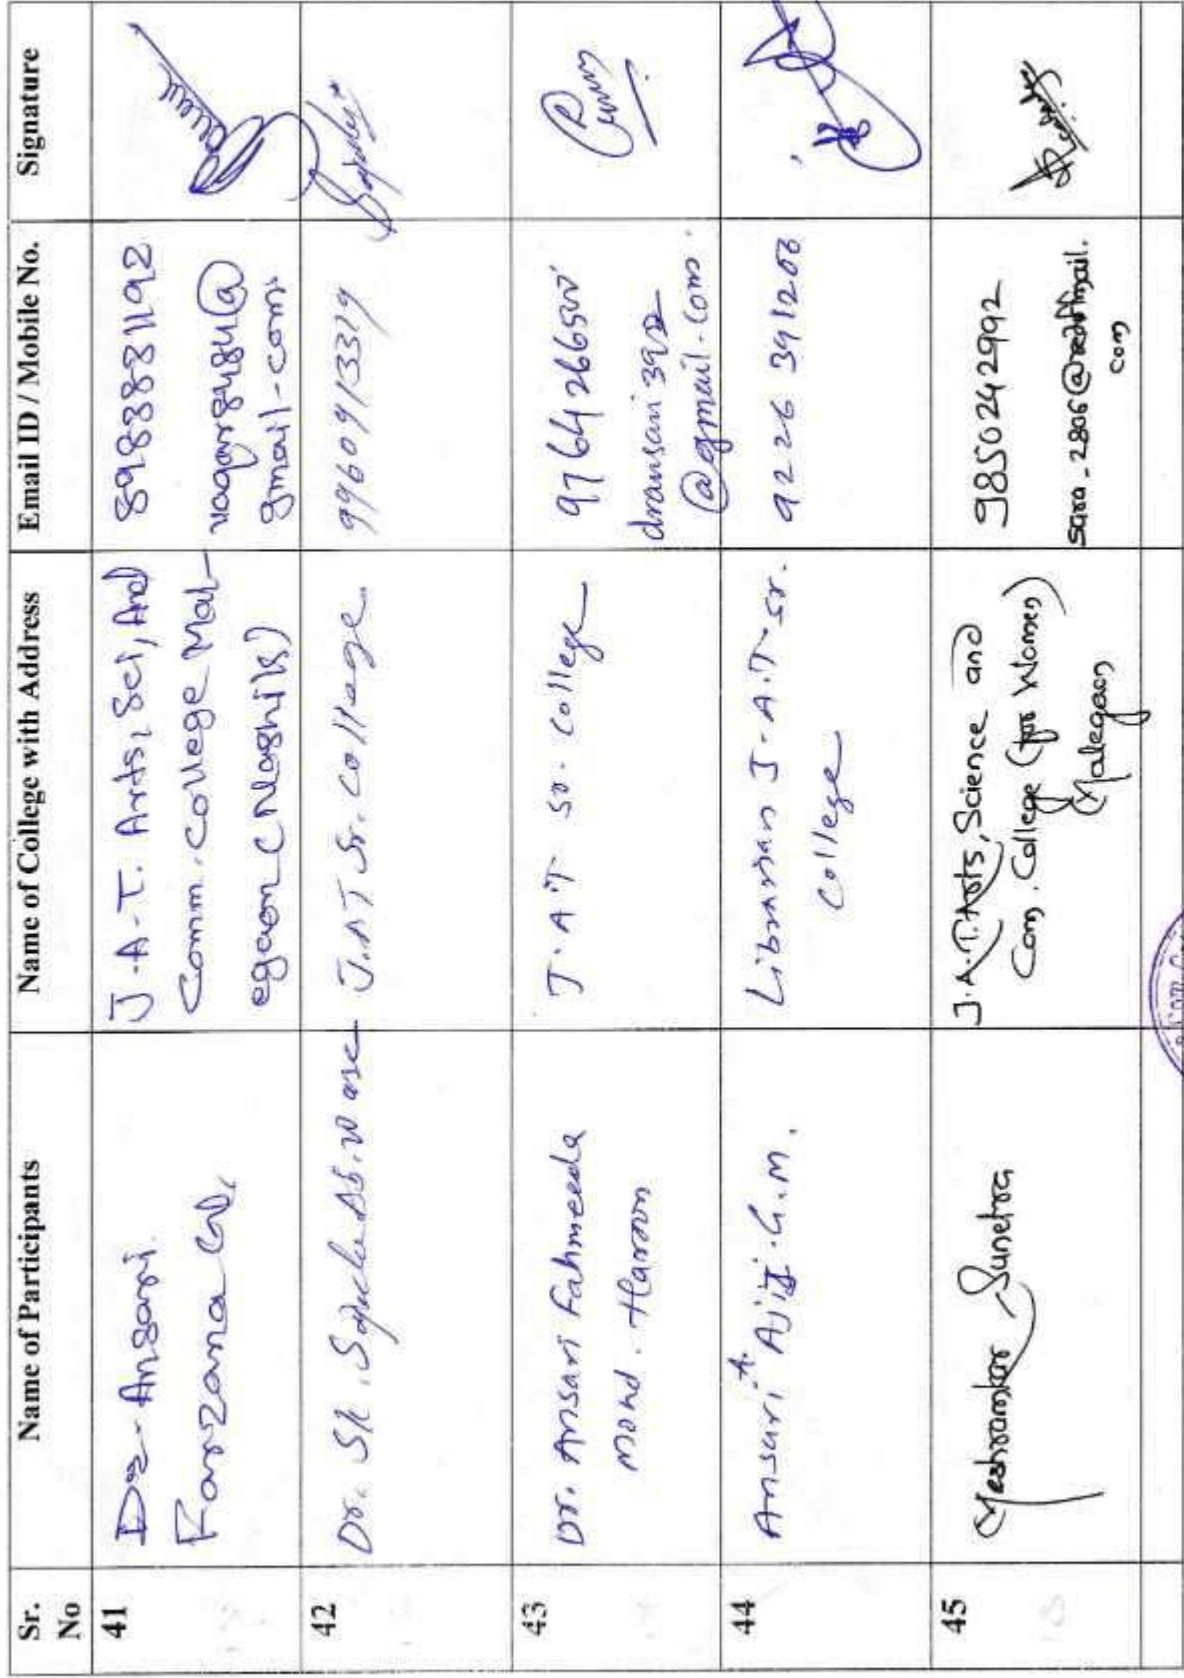 Sr. No
Name of Participants
Name of College with Address
Email ID / Mobile No.
Signature
41
Dr. Ansari
Farzana
J.A.T. Arts, Sci, And
Comm. College Mal-
egaon (Nashik)
8983881192
gmail.com
42
Dr. Sk.
J.A.T Sr. College
9960913379
43
Dr. Ansari Fahmeeda
Mohd. Haroon
J.A.T Sr. College
dransari392
@gmail.com
44
Ansari A. Ajij G.M.
Librarian J.A.T Sr.
College
9226 391203
45
Meshramkar Sunetra
J.A.T. Arts, Science and
Com. College (for Women)
Malegaon
9850242992
sara_2806@rediffmail.
com